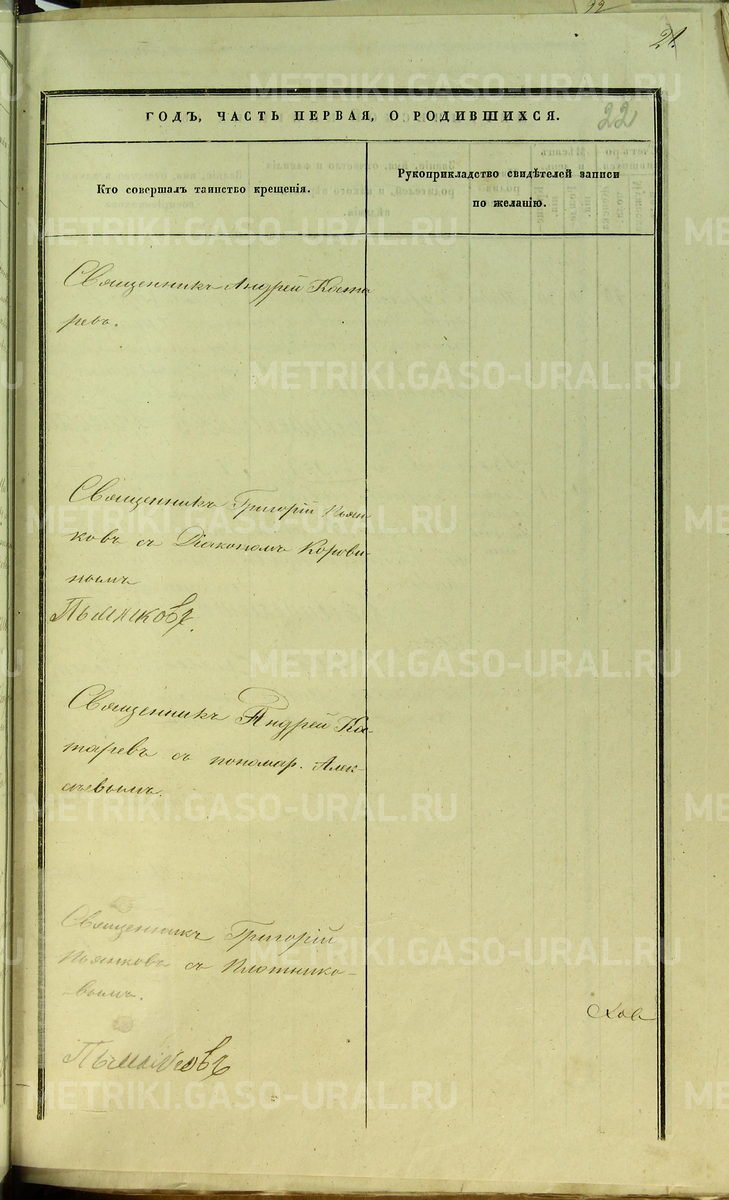 22
21.
ГОДЪ, ЧАСТЬ ПЕРВАЯ, О РОДИВШИХСЯ.
22
Кто совершалъ таинство крещенія.
Рукоприкладство свидѣтелей записи
по желанію.
Священникъ Андрей Кота
ревъ.
Священникъ Григорій Пьян
ковъ съ Діакономъ Корови
нымъ
Пьянковъ.
Священникъ Андрей Ко
таревъ съ пономар. Алек-
сѣевымъ.
Священникъ Григорій
Пьянковъ съ Плотнико-
вымъ.
Пьянковъ
METRIKI.GASO-URAL.RU